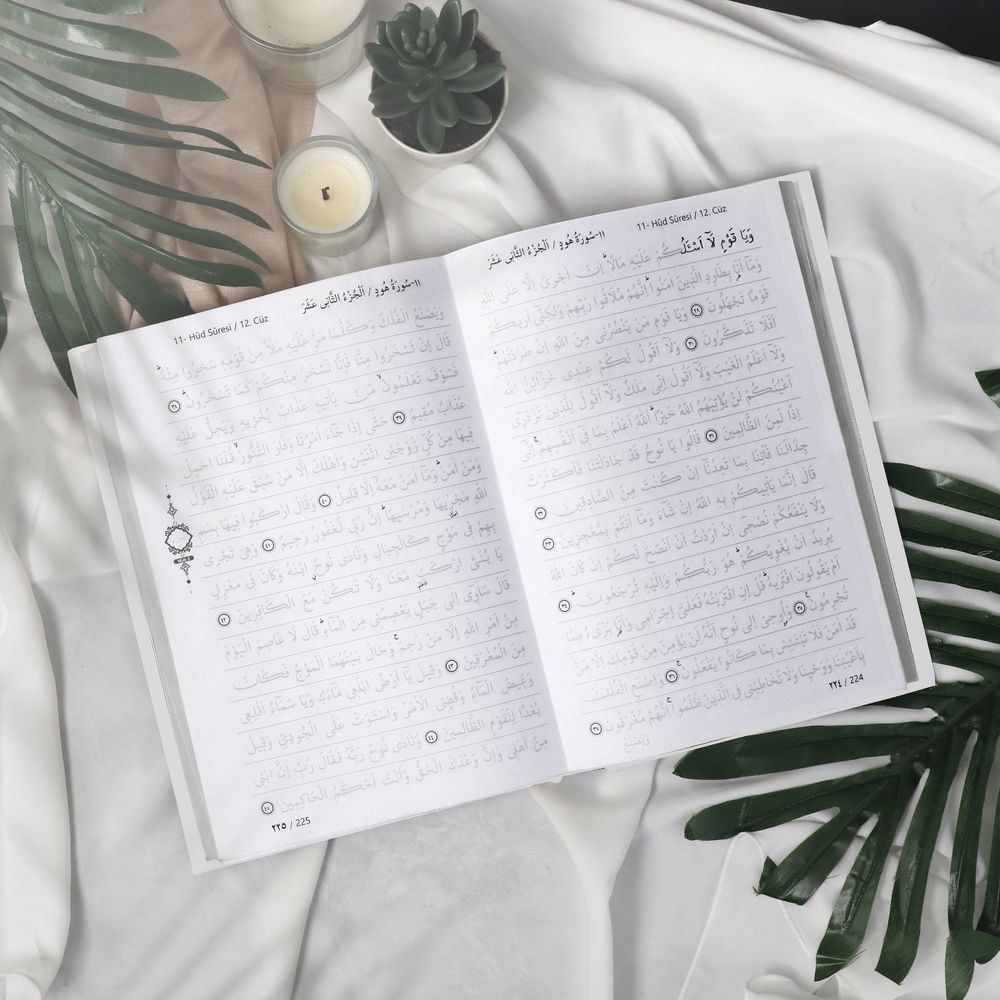 ١١-سُورَةُ هُودٍ / اَلْجُزْءُ الثَّانِى عَشَرَ
11- Hûd Sûresi / 12. Cüz
وَيَا قَوْمِ لَٓا اَسْـَٔلُكُمْ عَلَيْهِ مَالًاۜ اِنْ اَجْرِىَ اِلَّا عَلَى اللّٰهِ
وَمَٓا اَنَا۬ بِطَارِدِ الَّذ۪ينَ اٰمَنُواۜ اِنَّهُمْ مُلَاقُوا رَبِّهِمْ وَلٰكِنّ۪ٓى اَرٰيكُمْ
قَوْمًا تَجْهَلُونَ ﴿٢٩﴾ وَيَا قَوْمِ مَنْ يَنْصُرُن۪ى مِنَ اللّٰهِ اِنْ طَرَدْتُهُمْۜ
اَفَلَا تَذَكَّرُونَ ﴿٣٠﴾ وَلَٓا اَقُولُ لَكُمْ عِنْد۪ى خَزَٓائِنُ اللّٰهِ
وَلَٓا اَعْلَمُ الْغَيْبَ وَلَٓا اَقُولُ اِنّ۪ى مَلَكٌ وَلَٓا اَقُولُ لِلَّذ۪ينَ تَزْدَر۪ٓى
اَعْيُنُكُمْ لَنْ يُؤْتِيَهُمُ اللّٰهُ خَيْرًاۜ اَللّٰهُ اَعْلَمُ بِمَا ف۪ٓى اَنْفُسِهِمْۚ اِنّ۪ٓى
اِذًا لَمِنَ الظَّالِم۪ينَ ﴿٣١﴾ قَالُوا يَا نُوحُ قَدْ جَادَلْتَنَا فَاَكْثَرْتَ
جِدَالَنَا فَأْتِنَا بِمَا تَعِدُنَٓا اِنْ كُنْتَ مِنَ الصَّادِق۪ينَ ﴿٣٢﴾
قَالَ اِنَّمَا يَأْت۪يكُمْ بِهِ اللّٰهُ اِنْ شَٓاءَ وَمَٓا اَنْتُمْ بِمُعْجِز۪ينَ ﴿٣٣﴾
وَلَا يَنْفَعُكُمْ نُصْح۪ٓى اِنْ اَرَدْتُ اَنْ اَنْصَحَ لَكُمْ اِنْ كَانَ اللّٰهُ
يُر۪يدُ اَنْ يُغْوِيَكُمْۜ هُوَ رَبُّكُمْ وَاِلَيْهِ تُرْجَعُونَۜ ﴿٣٤﴾
اَمْ يَقُولُونَ افْتَرٰيهُۜ قُلْ اِنِ افْتَرَيْتُهُ فَعَلَىَّ اِجْرَام۪ى وَاَنَا۬ بَر۪ٓىءٌ مِمَّا
تُجْرِمُونَ۟ ﴿٣٥﴾ وَاُو۫حِىَ اِلٰى نُوحٍ اَنَّهُ لَنْ يُؤْمِنَ مِنْ قَوْمِكَ اِلَّا مَنْ
قَدْ اٰمَنَ فَلَا تَبْتَئِسْ بِمَا كَانُوا يَفْعَلُونَۚ ﴿٣٦﴾ وَاصْنَعِ الْفُلْكَ
بِاَعْيُنِنَا وَوَحْيِنَا وَلَا تُخَاطِبْن۪ى فِى الَّذ۪ينَ ظَلَمُواۚ اِنَّهُمْ مُغْرَقُونَ ﴿٣٧﴾
وَيَصْنَعُ
٢٢٤ / 224
١١-سُورَةُ هُودٍ / اَلْجُزْءُ الثَّانِى عَشَرَ
11- Hûd Sûresi / 12. Cüz
وَيَصْنَعُ الْفُلْكَ وَكُلَّمَا مَرَّ عَلَيْهِ مَلَاٌ مِنْ قَوْمِه۪ سَخِرُوا مِنْهُۜ
قَالَ اِنْ تَسْخَرُوا مِنَّا فَاِنَّا نَسْخَرُ مِنْكُمْ كَمَا تَسْخَرُونَۜ ﴿٣٨﴾
فَسَوْفَ تَعْلَمُونَۙ مَنْ يَأْت۪يهِ عَذَابٌ يُخْز۪يهِ وَيَحِلُّ عَلَيْهِ
عَذَابٌ مُق۪يمٌ ﴿٣٩﴾ حَتّٰٓى اِذَا جَٓاءَ اَمْرُنَا وَفَارَ التَّنُّورُۙ قُلْنَا احْمِلْ
ف۪يهَا مِنْ كُلٍّ زَوْجَيْنِ اثْنَيْنِ وَاَهْلَكَ اِلَّا مَنْ سَبَقَ عَلَيْهِ الْقَوْلُ
وَمَنْ اٰمَنَۜ وَمَٓا اٰمَنَ مَعَهُٓ اِلَّا قَل۪يلٌ ﴿٤٠﴾ وَقَالَ ارْكَبُوا ف۪يهَا بِسْمِ
اللّٰهِ مَجْرٰۭۙيهَا وَمُرْسٰيهَاۜ اِنَّ رَبّ۪ى لَغَفُورٌ رَح۪يمٌ ﴿٤١﴾ وَهِىَ تَجْر۪ى
بِهِمْ ف۪ى مَوْجٍ كَالْجِبَالِ وَنَادٰى نُوحٌۨ ابْنَهُ وَكَانَ ف۪ى مَعْزِلٍ
يَا بُنَىَّ ارْكَبْ مَعَنَا وَلَا تَكُنْ مَعَ الْكَافِر۪ينَ ﴿٤٢﴾
قَالَ سَاٰو۪ٓى اِلٰى جَبَلٍ يَعْصِمُن۪ى مِنَ الْمَٓاءِۜ قَالَ لَا عَاصِمَ الْيَوْمَ
مِنْ اَمْرِ اللّٰهِ اِلَّا مَنْ رَحِمَۚ وَحَالَ بَيْنَهُمَا الْمَوْجُ فَكَانَ
مِنَ الْمُغْرَق۪ينَ ﴿٤٣﴾ وَق۪يلَ يَٓا اَرْضُ ابْلَع۪ى مَٓاءَكِ وَيَا سَمَٓاءُ اَقْلِع۪ى
وَغ۪يضَ الْمَٓاءُ وَقُضِىَ الْاَمْرُ وَاسْتَوَتْ عَلَى الْجُودِىِّ وَق۪يلَ
بُعْدًا لِلْقَوْمِ الظَّالِم۪ينَ ﴿٤٤﴾ وَنَادٰى نُوحٌ رَبَّهُ فَقَالَ رَبِّ اِنَّ ابْن۪ى
مِنْ اَهْل۪ى وَاِنَّ وَعْدَكَ الْحَقُّ وَاَنْتَ اَحْكَمُ الْحَاكِم۪ينَ ﴿٤٥﴾
٢٢٥ / 225